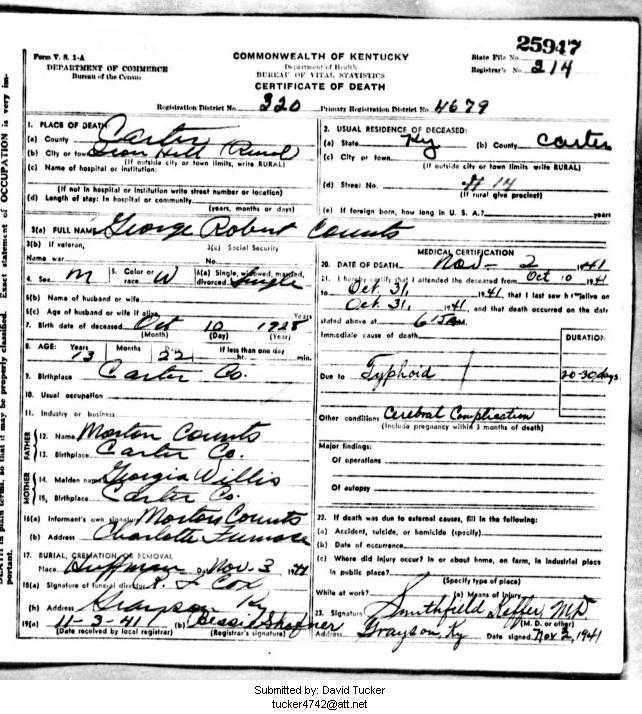 25947
Form V. S. 1-A
DEPARTMENT OF COMMERCE
Bureau of the Census
COMMONWEALTH OF KENTUCKY
Department of Health
BUREAU OF VITAL STATISTICS
CERTIFICATE OF DEATH
State File No.
Registrar's No. 214
Registration District No. 220 Primary Registration District No. 4679
1. PLACE OF DEATH:
(a) County Carter
(b) City or town Iron Hill (Rural)
(If outside city or town limits, write RURAL)
(c) Name of hospital or institution:
(If not in hospital or institution write street number or location)
(d) Length of stay: In hospital or community
(years, months or days)
2. USUAL RESIDENCE OF DECEASED:
(a) State Ky (b) County Carter
(c) City or town
(If outside city or town limits write RURAL)
(d) Street No. # 14
(If rural give precinct)
(e) If foreign born, how long in U. S. A.? years
3(a) FULL NAME George Robert Counts
3(b) If veteran, 3(c) Social Security
Name war No.
4. Sex M 5. Color or race W 6(a) Single, widowed, married, divorced Single
6(b) Name of husband or wife
6(c) Age of husband or wife if alive Years
7. Birth date of deceased Oct 10 1928
(Month) (Day) (Year)
8. AGE: Years 13 Months Days 22 If less than one day hr. min.
9. Birthplace Carter Co.
10. Usual occupation
11. Industry or business
FATHER
12. Name Morton Counts
13. Birthplace Carter Co.
MOTHER
14. Maiden name Georgia Willis
15. Birthplace Carter Co.
16(a) Informant's own signature Morton Counts
(b) Address Charlotte Furnace
17. BURIAL, CREMATION, OR REMOVAL
Place Huffman Nov. 3 1941
18(a) Signature of funeral director R. F. Cox
(b) Address Grayson Ky
19(a) 11-3-41 (b) Bessie Shaffner
(Date received by local registrar) (Registrar's signature)
MEDICAL CERTIFICATION
20. DATE OF DEATH Nov - 2 1941
21. I hereby certify that I attended the deceased from Oct 10 1941
to Oct 31, 1941, that I last saw him alive on
Oct 31, 1941, and that death occurred on the date
stated above at M.
Immediate cause of death
DURATION
Due to Typhoid 20-30 days
Other conditions Cerebral Complication
(Include pregnancy within 3 months of death)
Major findings:
Of operations
Of autopsy
22. If death was due to external causes, fill in the following:
(a) Accident, suicide, or homicide (specify)
(b) Date of occurrence
(c) Where did injury occur? In or about home, on farm, in industrial place
in public place?
(Specify type of place)
While at work? (e) Means of Injury
23. Signature Smithfield Keffer, M.D.
(M. D. or other)
Address Grayson, Ky Date signed Nov 2, 1941
Exact statement of OCCUPATION is very im-
portant.
Submitted by: David Tucker
tucker4742@att.net